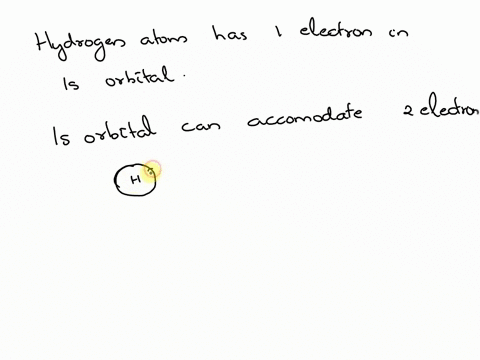 Hydrogen atoms has 1 electron in
1s orbital.
1s orbital can accomodate 2 electron
H